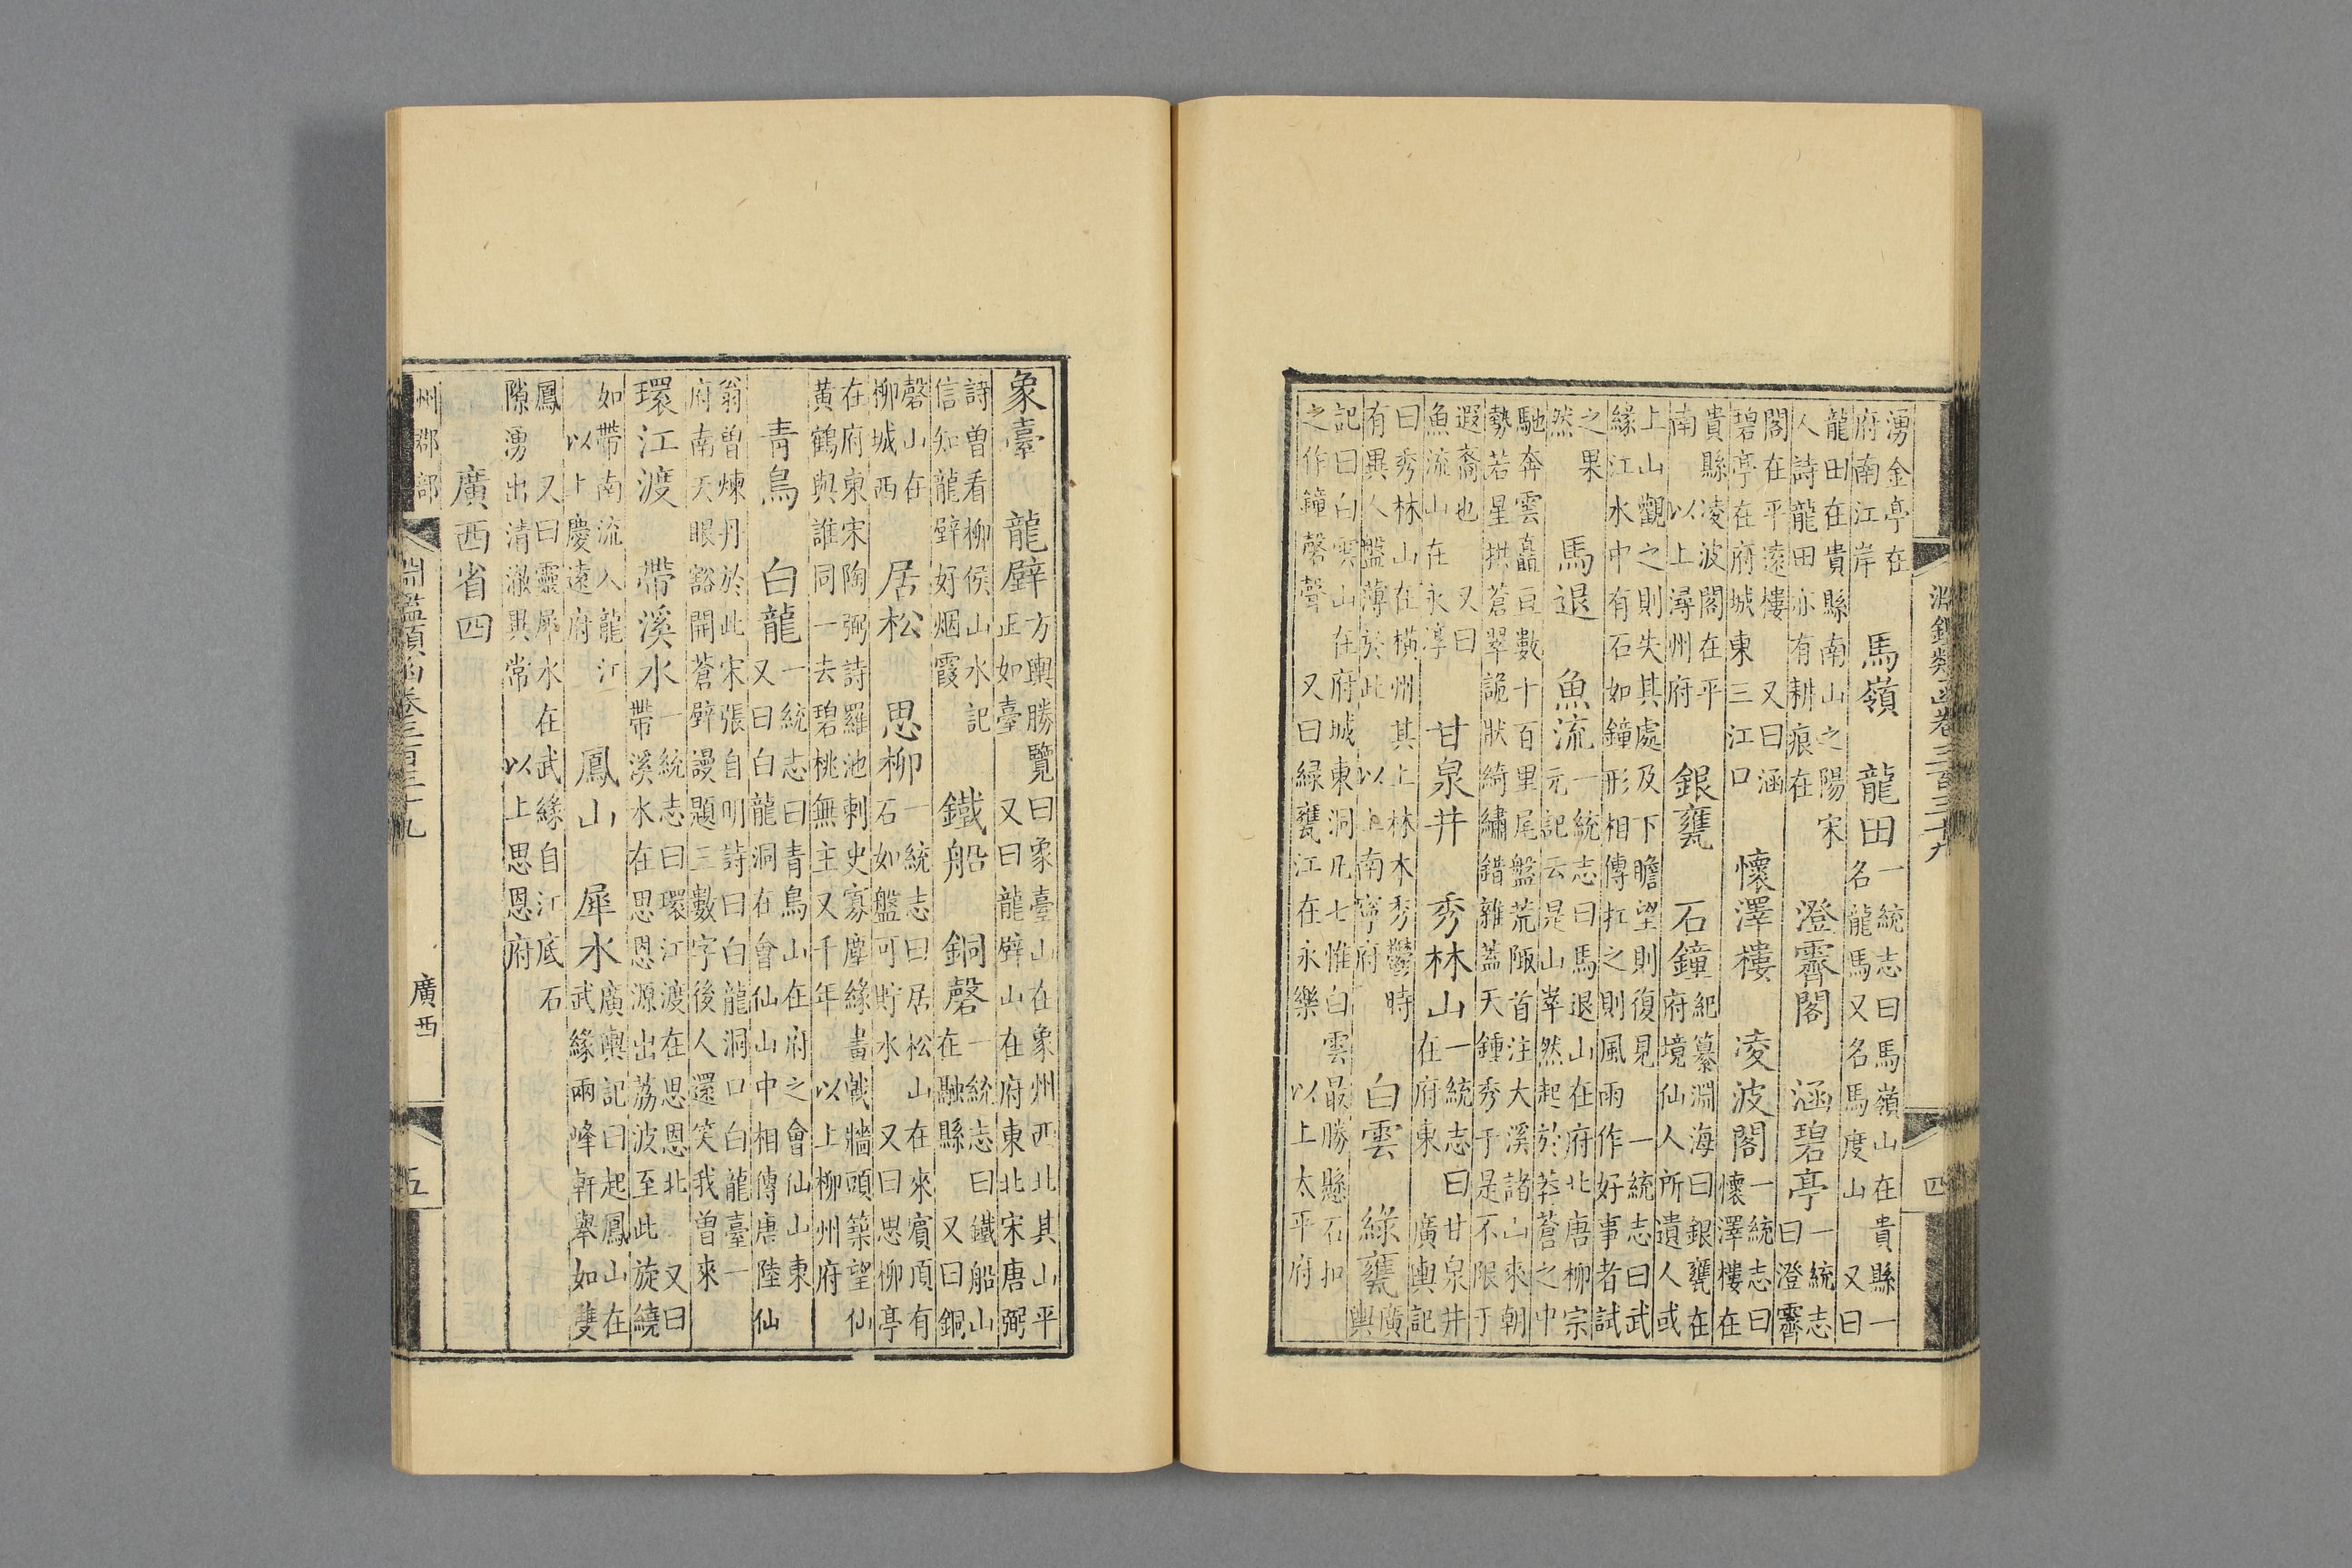 淵鑑類函卷三百三十九
四
湧金亭在
府南江岸
馬嶺　龍田
一統志曰馬嶺山在貴縣一
名龍馬又名馬度山　又曰
龍田在貴縣南山之陽宋
人詩龍田亦有耕痕在
澄霽閣　涵碧亭
一統志
曰澄霽
閣在平遠樓　又曰涵
碧亭在府城東三江口
懷澤樓　凌波閣
一統志曰
懷澤樓在
貴縣凌波閣在平
南　以上潯州府
銀甕　石鐘
紀纂淵海曰銀甕在
府境仙人所遺人或
上山觀之則失其處及下瞻望則復見　一統志曰武
緣江水中有石如鐘形相傳扛之則風雨作好事者試
之果
然
馬退　魚流
一統志曰馬退山在府北唐柳宗
元記云是山崒然起於莽蒼之中
馳奔雲矗亘數十百里尾盤荒陬首注大溪諸山來朝
勢若星拱蒼翠詭狀綺繡錯雜蓋天鍾秀于是不限于
遐裔也　又曰
魚流山在永淳
甘泉井　秀林山
一統志曰甘泉井
在府東　廣輿記
曰秀林山在橫州其上林木秀鬱時
有異人盤薄於此　以上南寧府
白雲　綠甕
廣
輿
記曰白雲山在府城東洞凡七惟白雲最勝懸石扣
之作鐘磬聲　又曰綠甕江在永樂　以上太平府
象臺　龍壁
方輿勝覽曰象臺山在象州西北其山平
正如臺　又曰龍壁山在府東北宋唐弼
詩曾看柳侯山水記
信知龍壁好烟霞
鐵船　銅磬
一統志曰鐵船山
在融縣　又曰銅
磬山在
柳城西
居松　思柳
一統志曰居松山在來賓頂有
石如盤可貯水　又曰思柳亭
在府東宋陶弼詩羅池刺史寡塵緣畵戟牆頭築望仙
黄鶴與誰同一去碧桃無主又千年　以上柳州府
青鳥　白龍
一統志曰青鳥山在府之會仙山東
又曰白龍洞在會仙山中相傳唐陸仙
翁曾煉丹於此宋張自明詩曰白龍洞口白龍臺一
府南天眼豁開蒼壁謾題三數字後人還笑我曾來
環江渡　帶溪水
一統志曰環江渡在思恩北　又曰
帶溪水在思恩源出荔波至此旋繞
如帶南流入龍江
以上慶遠府
鳳山　犀水
廣輿記曰起鳳山在
武緣兩峰軒舉如雙
鳳　又曰靈犀水在武緣自江底石
隙湧出清澈異常　以上思恩府
廣西省四
州郡部
淵鑑類函卷三百三十九
廣西
五